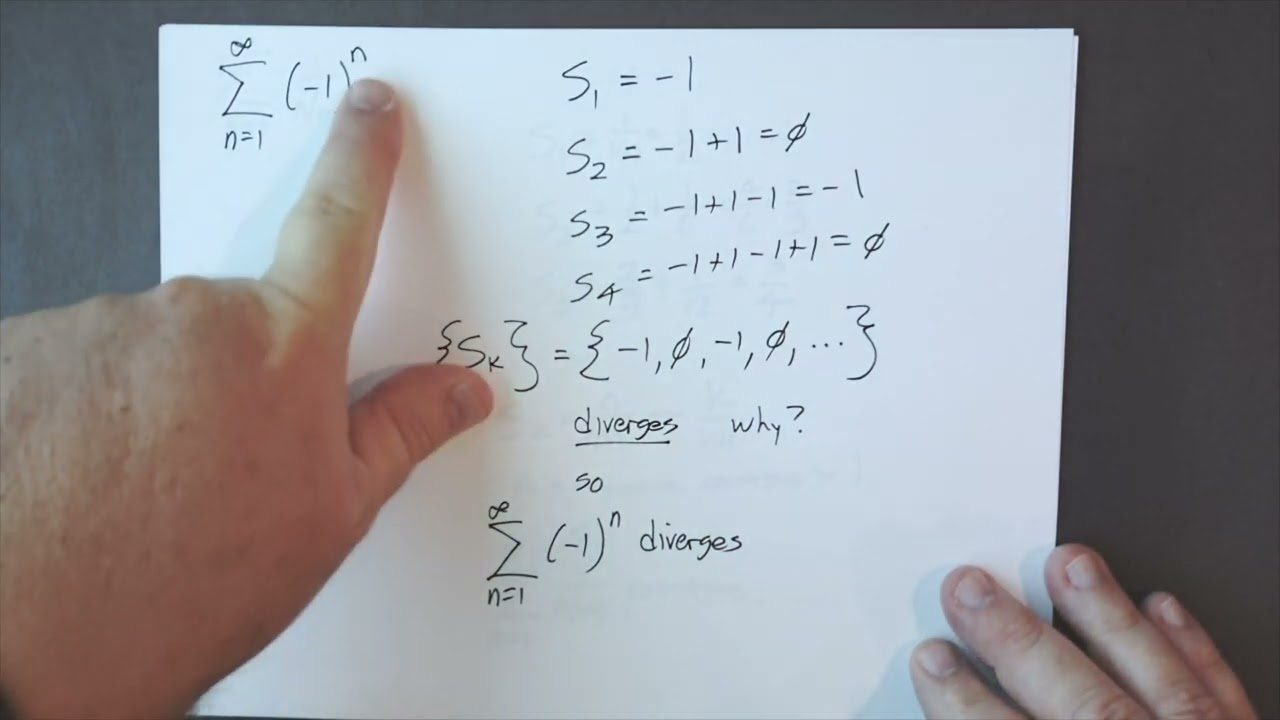 ∞
∑ (-1)^n
n=1
S₁ = -1
S₂ = -1+1 = ϕ
S₃ = -1+1-1 = -1
S₄ = -1+1-1+1 = ϕ
{Sₖ} = {-1, ϕ, -1, ϕ, ...}
diverges why?
so
∞
∑ (-1)^n diverges
n=1